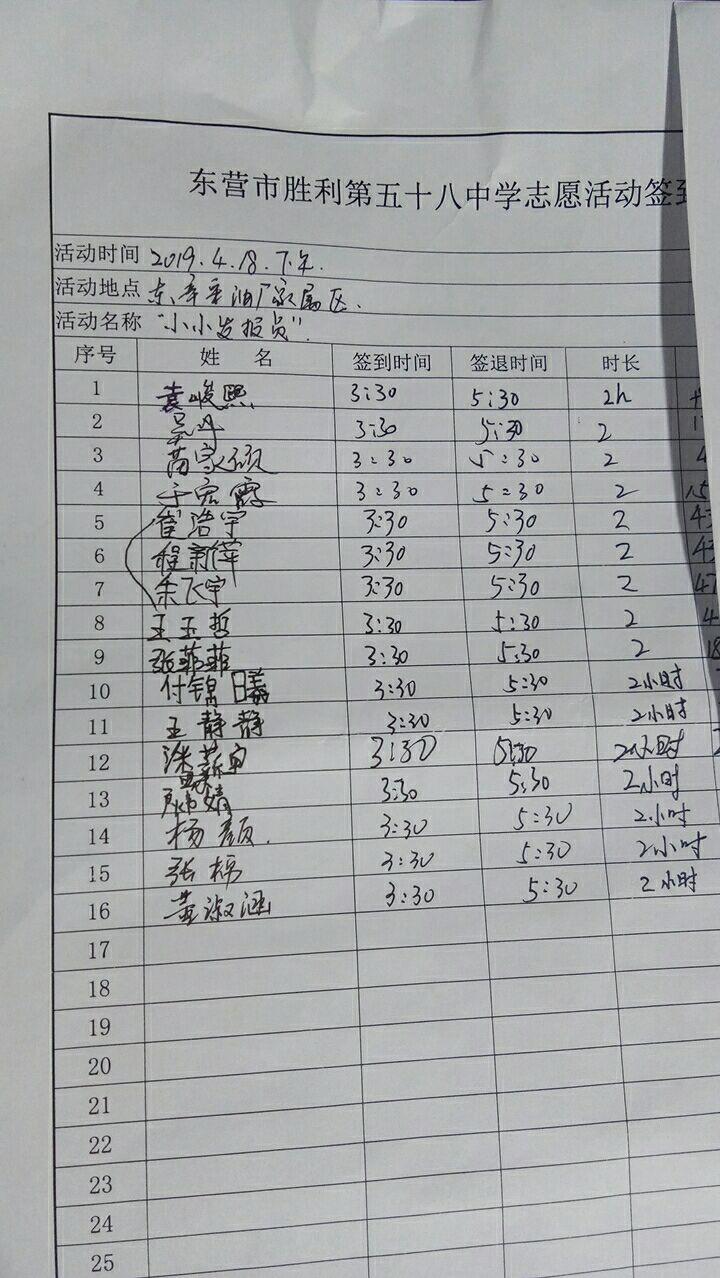 东营市胜利第五十八中学志愿活动签到
活动时间 2019.4.18.下午.
活动地点 东辛采油厂家属区.
活动名称 “小小发报员”.
序号 姓 名 签到时间 签退时间 时长
1 袁峻熙 3:30 5:30 2h
2 吴丹 3:30 5:30 2
3 苗家硕 3:30 5:30 2
4 于宏霞 3:30 5:30 2
5 崔浩宇 3:30 5:30 2
6 程新萍 3:30 5:30 2
7 朱飞宇 3:30 5:30 2
8 王玉哲 3:30 5:30 2
9 张菲菲 3:30 5:30 2
10 付锦曦 3:30 5:30 2小时
11 王静静 3:30 5:30 2小时
12 3:30 5:30 2小时
13 3:30 5:30 2小时
14 杨颜. 3:30 5:30 2小时
15 张 3:30 5:30 2小时
16 黄淑涵 3:30 5:30 2小时
17
18
19
20
21
22
23
24
25